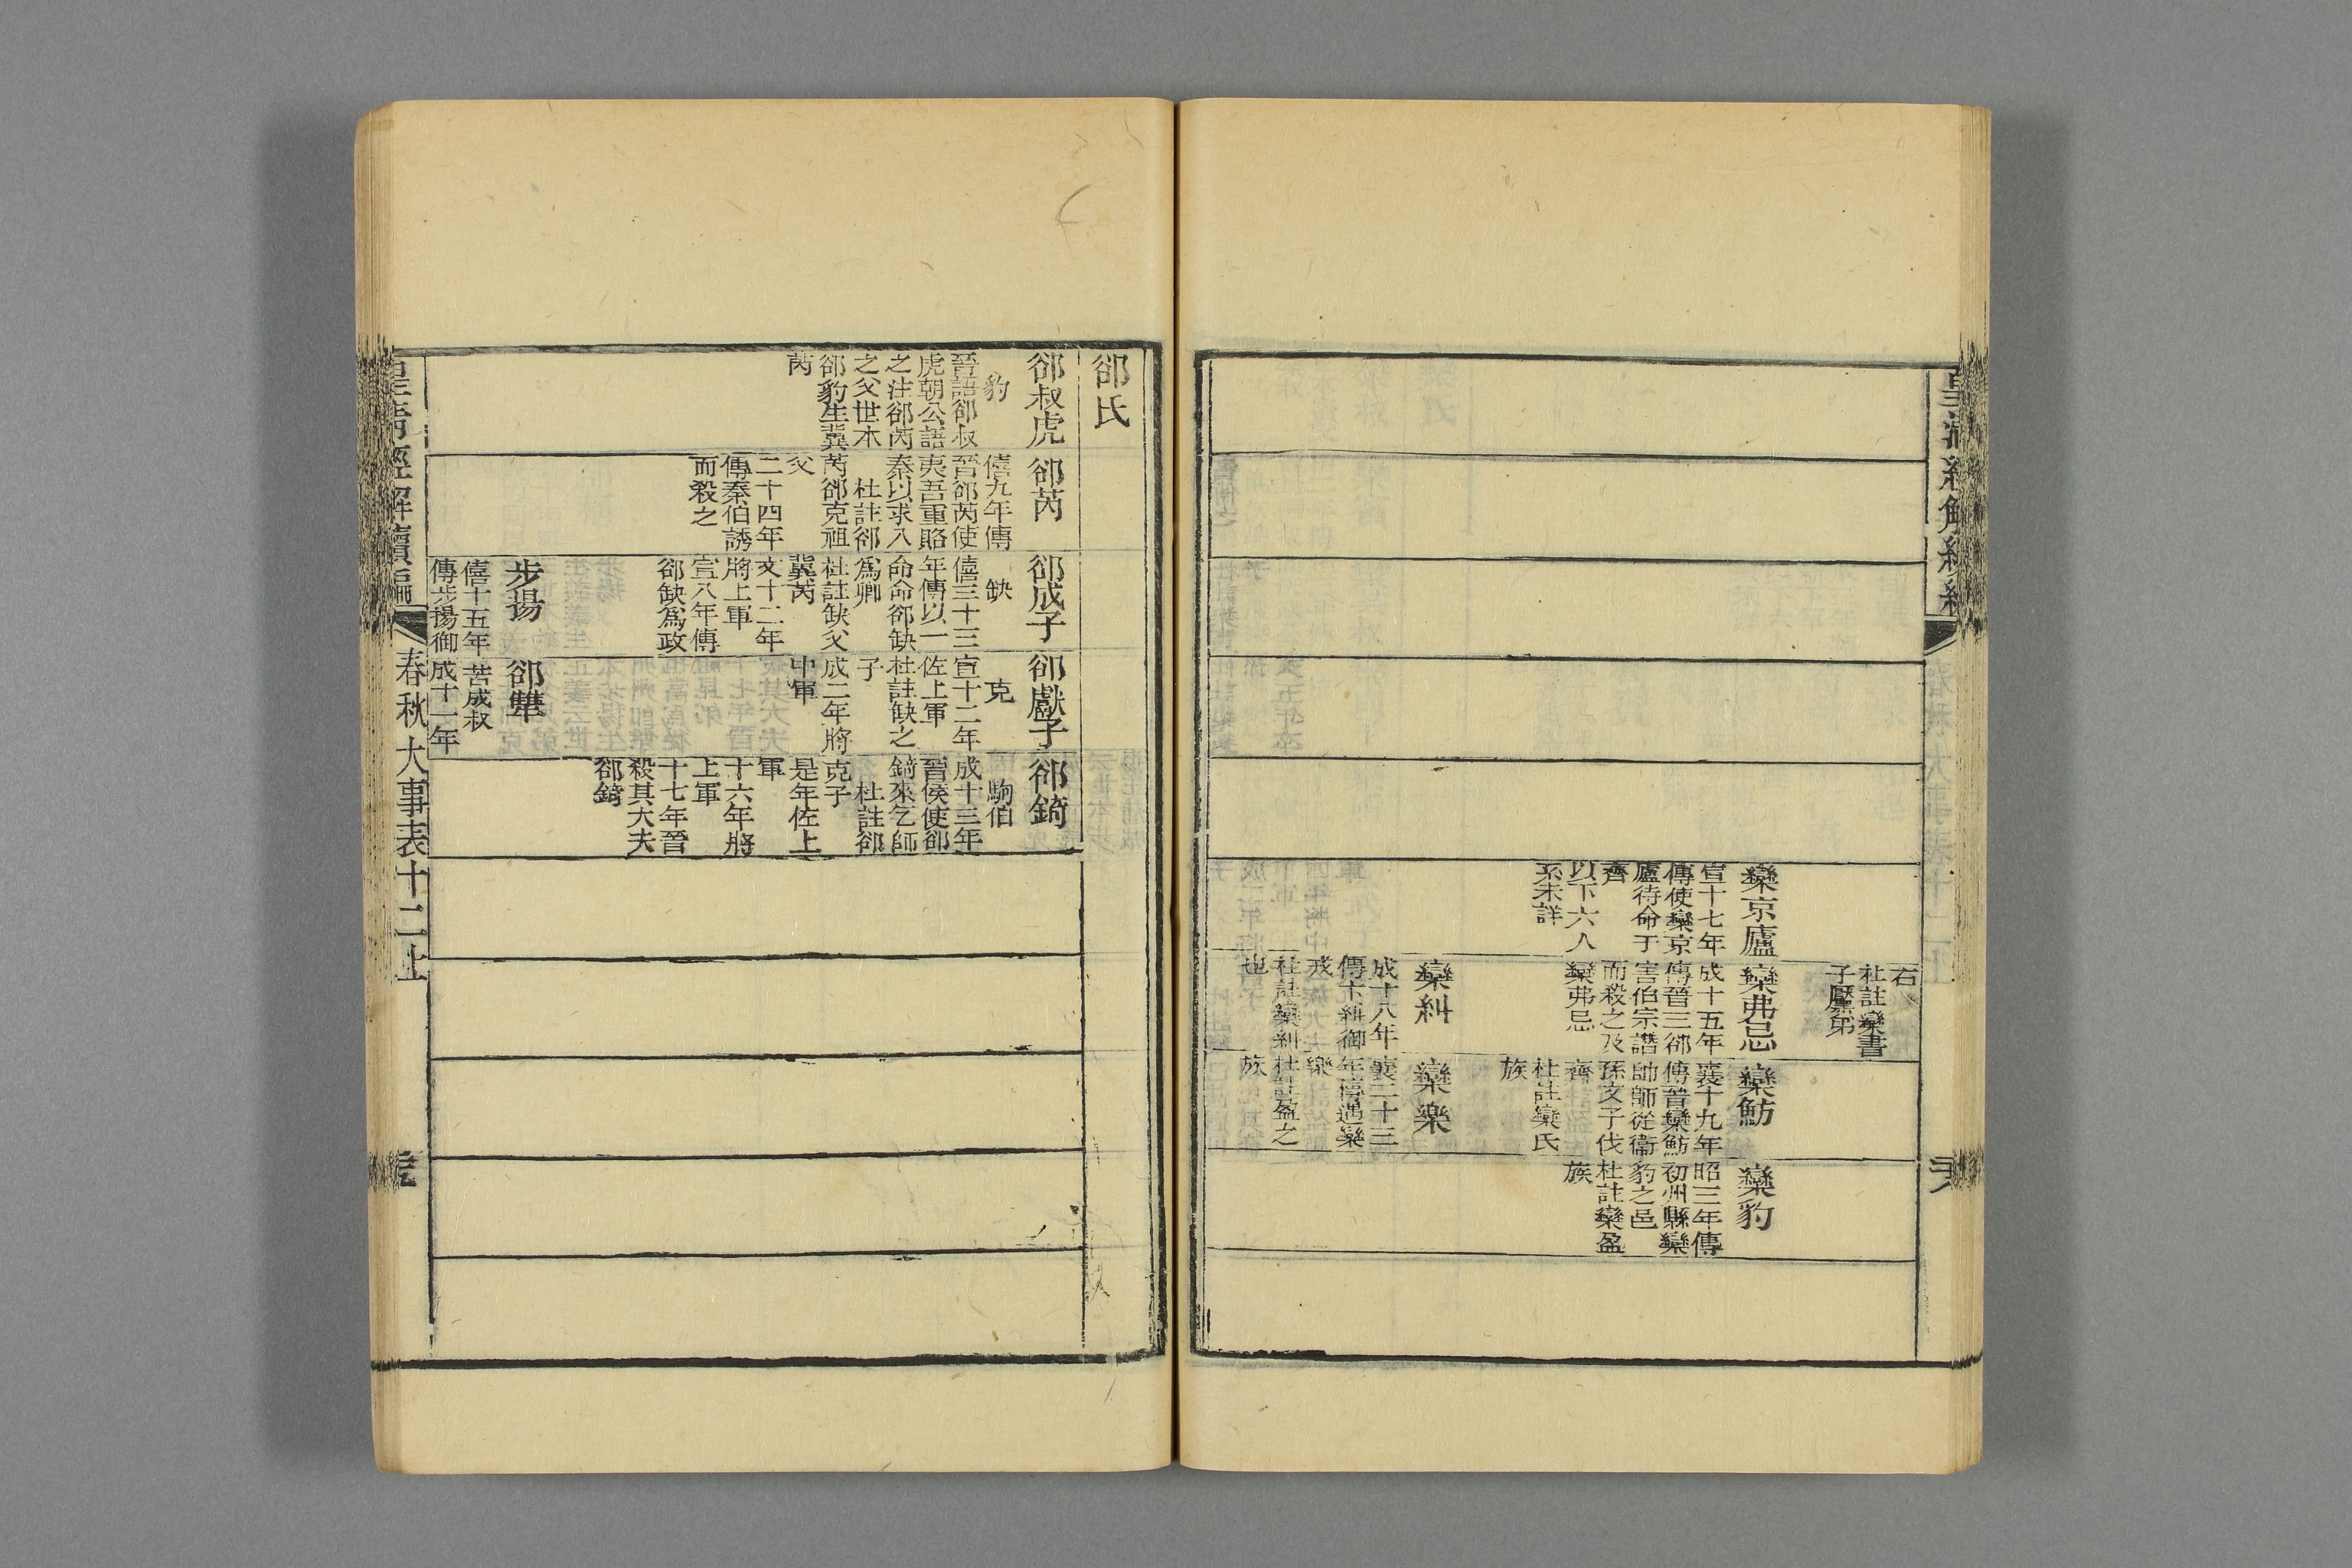 右
杜註欒書
子黶弟
欒京廬
宣十七年
傳使欒京
廬待命于
齊
以下六人
系未詳
欒弗忌
成十五年
傳晉三郤
害伯宗譖
而殺之及
欒弗忌
欒魴
襄十九年
傳晉欒魴
帥師從衞
孫文子伐
齊
杜註欒氏
族
欒豹
昭三年傳
初州縣欒
豹之邑
杜註欒盈
族
欒糾
成十八年
傳卞糾御
戎
杜註欒糾
也
欒樂
襄二十三
年傳遇欒
樂
杜註盈之
族
郤氏
郤叔虎
豹
晉語郤叔
虎朝公語
之注郤芮
之父世本
郤豹生冀
芮
郤芮
僖九年傳
晉郤芮使
夷吾重賂
秦以求入
杜註郤
芮郤克祖
父
二十四年
傳秦伯誘
而殺之
郤成子
缺
僖三十三
年傳以一
命命郤缺
爲卿
杜註缺父
冀芮
文十二年
將上軍
宣八年傳
郤缺爲政
郤獻子
克
宣十二年
佐上軍
杜註缺之
子
成二年將
中軍
郤錡
駒伯
成十三年
晉侯使郤
錡來乞師
杜註郤
克子
是年佐上
軍
十六年將
上軍
十七年晉
殺其大夫
郤錡
步揚
僖十五年
傳步揚御
郤犨
苦成叔
成十一年
皇清經解續編
春秋大事表十二上